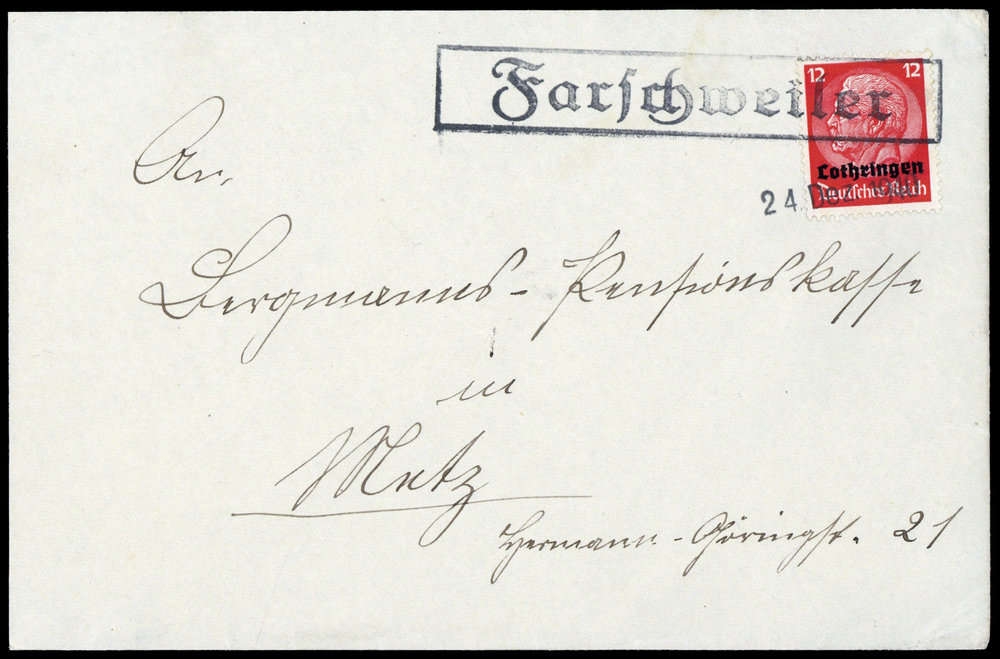 Farschweiler
12 12
Lothringen
Deutsches Reich
24 Dez.
An
Bergmanns-Pensionskasse
in
Metz
Hermann-Göringst. 21